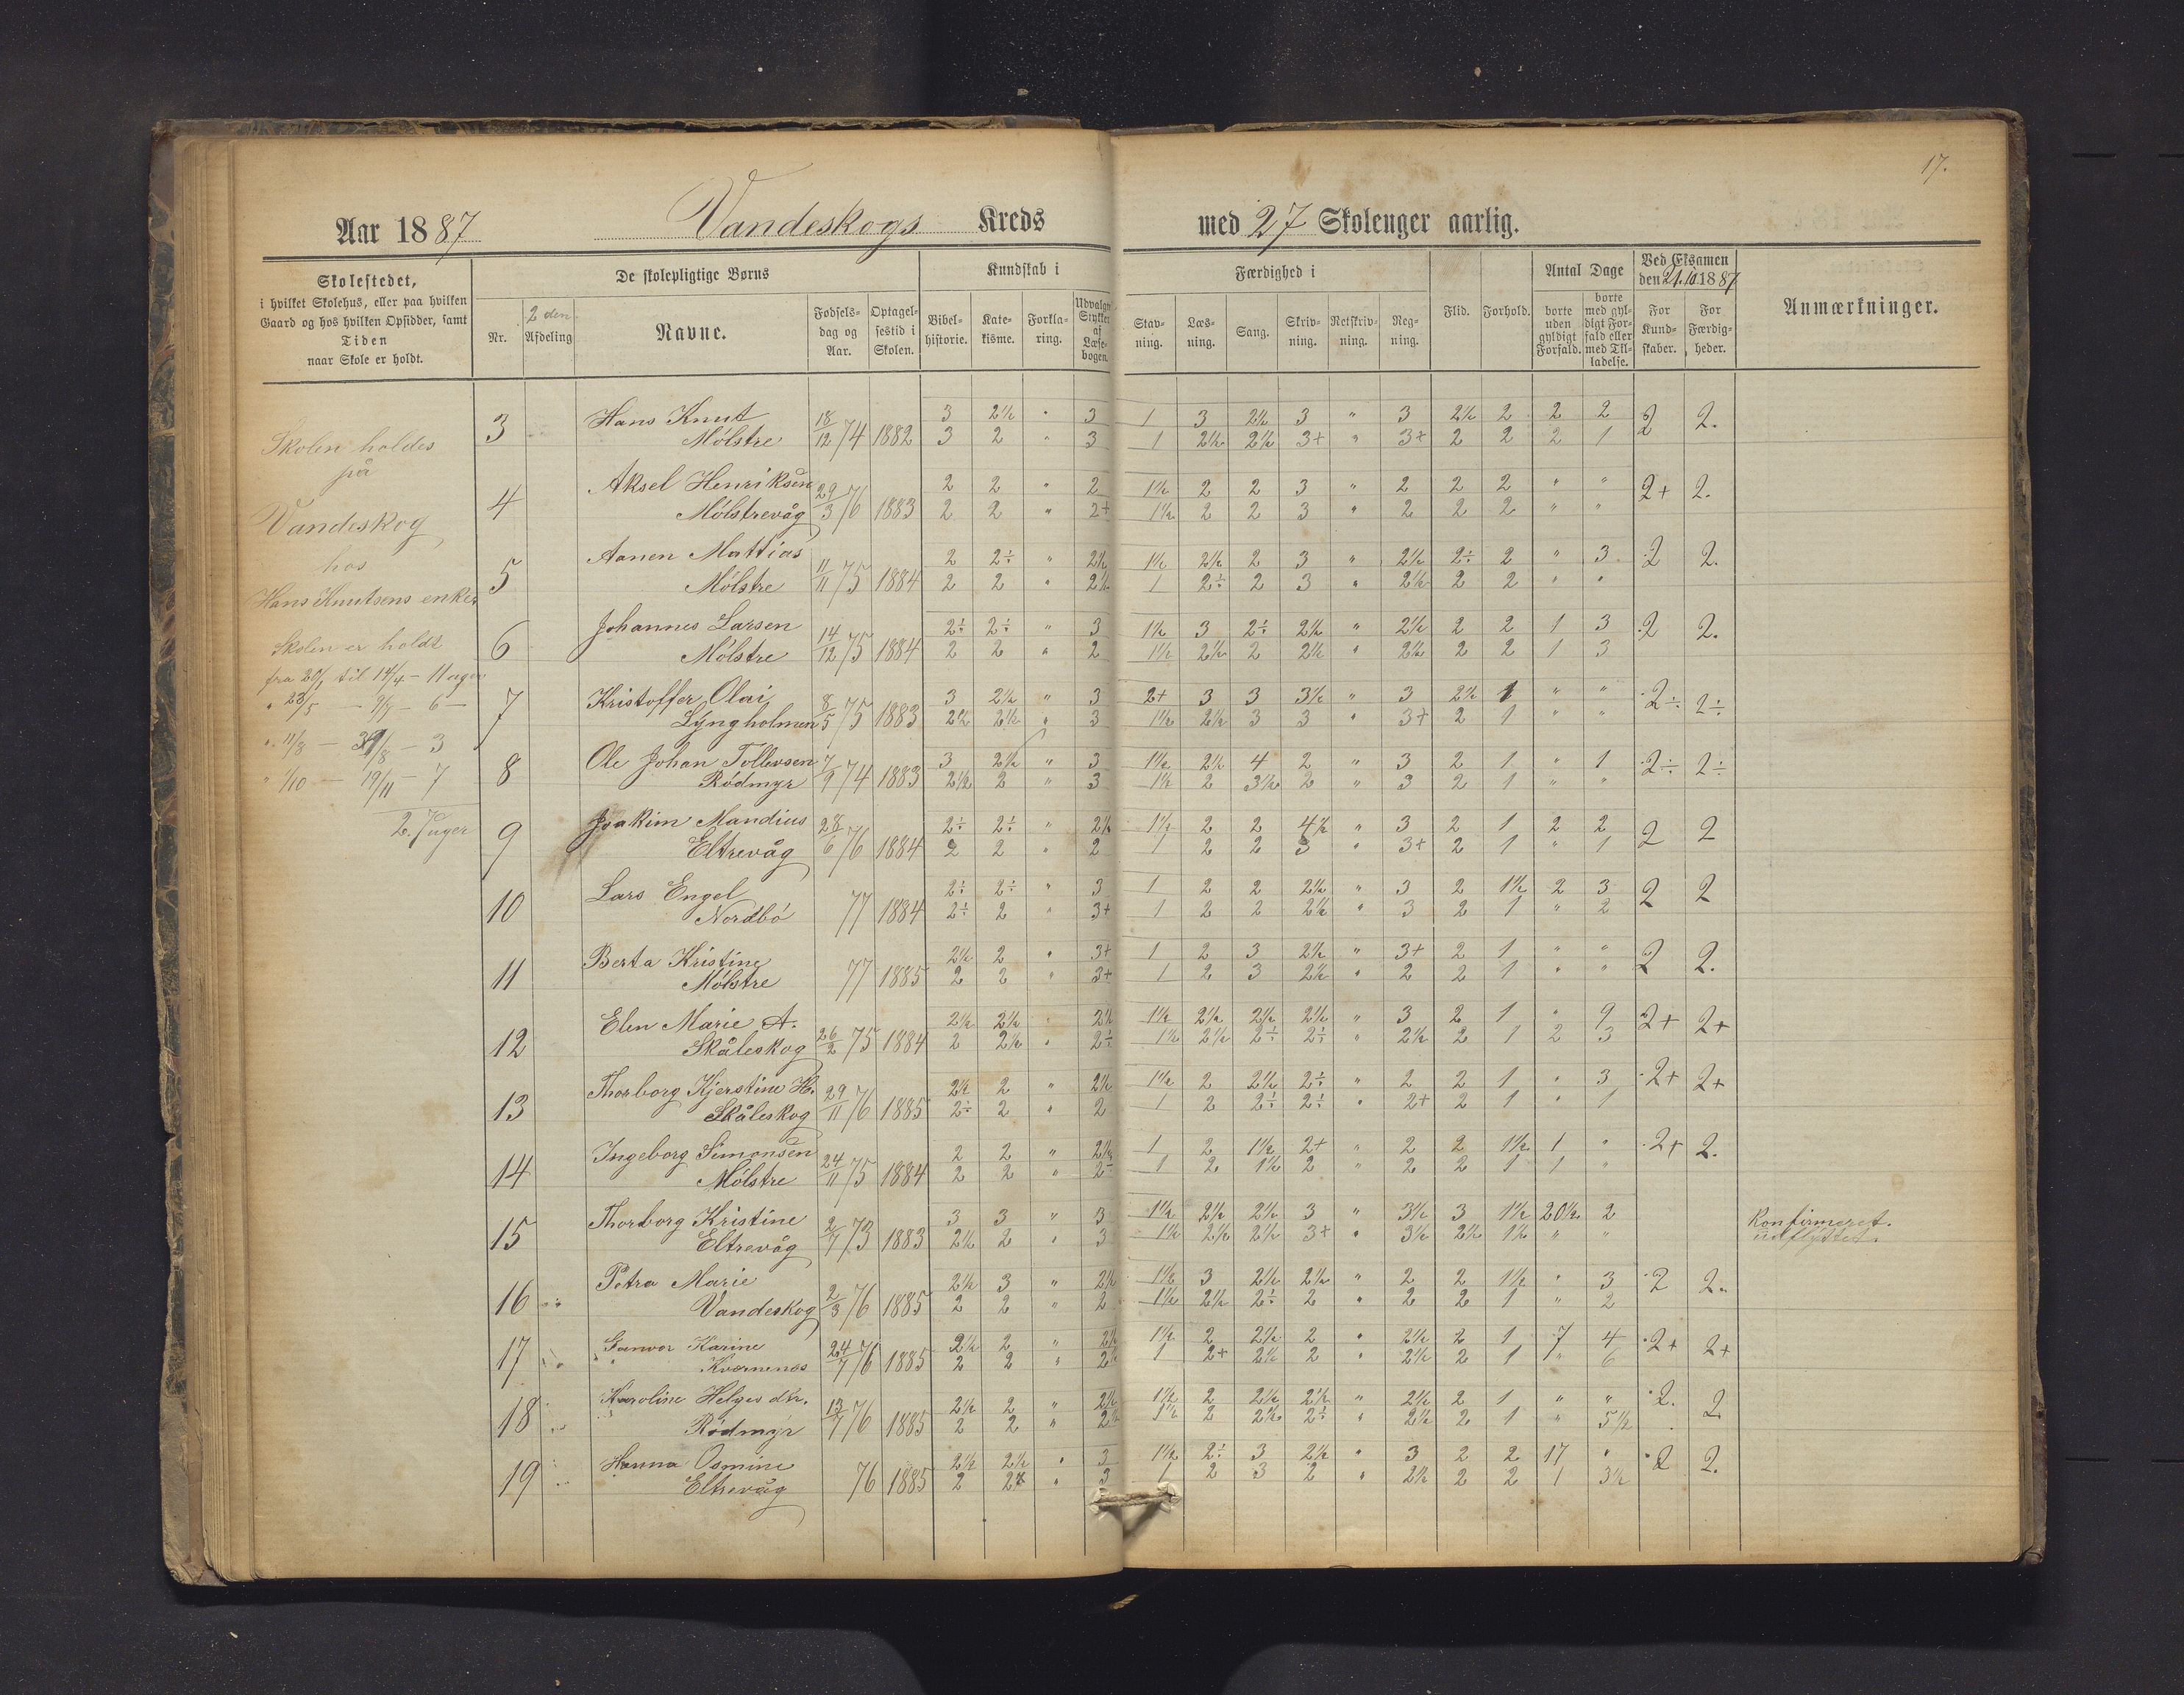 17.
Aar 1887 Vandeskogs Kreds med 27 Skoleuger aarlig.
Skolestedet,
i hvilket Skolehus, eller paa hvilken
Gaard og hos hvilken Opsidder, samt
Tiden
naar Skole er holdt.
De skolepligtige Børns
Nr.
2den
Afdeling
Navne.
Fødsels-
dag og
Aar.
Optagel-
sestid i
Skolen.
Kundskab i
Bibel-
historie.
Kate-
kisme.
Forkla-
ring.
Udvalgte
Stykker
af
Læse-
bogen.
Færdighed i
Stav-
ning.
Læs-
ning.
Sang.
Skriv-
ning.
Retskriv-
ning.
Reg-
ning.
Flid.
Forhold.
Antal Dage
borte
uden
gyldigt
Forfald.
borte
med gyl-
digt For-
fald eller
med Til-
ladelse.
Ved Eksamen
den 21.10 1887
For
Kund-
skaber.
For
Færdig-
heder.
Anmærkninger.
Skolen holdes
på
Vandeskog
hos
Hans Knutsens enke.
Skolen er holdt
fra 20/1 til 14/4 - 11 uger
" 23/5 - 9/7 - 6 -
" 11/8 - 31/8 - 3
" 1/10 - 19/11 - 7
27 uger
3 Hans Knut 18/12 74 1882 3 2½ " 3 1 3 2½ 3 " 3 2½ 2 2 2 2 2.
Mølstre 3 2 " 3 1 2½ 2½ 3+ " 3+ 2 2 2 1
4 Aksel Henriksen 29/3 76 1883 2 2 " 2 1½ 2 2 3 " 2 2 2 " " 2+ 2.
Mølstrevåg 2 2 " 2+ 1½ 2 2 3 " 2 2 2 " "
5 Aanen Mattias 11/11 75 1884 2 2÷ " 2½ 1½ 2½ 2 3 " 2½ 2÷ 2 " 3 2 2.
Mølstre 2 2 " 2½ 1 2÷ 2 3 " 2½ 2 2 " "
6 Johannes Larsen 14/12 75 1884 2÷ 2÷ " 3 1½ 3 2÷ 2½ " 2½ 2 2 1 3 2 2.
Mølstre 2 2 " 2 1½ 2½ 2 2½ " 2½ 2 2 1 3
7 Kristoffer Olai 8/5 75 1883 3 2½ " 3 2+ 3 3 3½ " 3 2½ 1 " " 2÷ 2÷
Lyngholmen 2½ 2½ " 3 1½ 2½ 3 3 " 3+ 2 1 " "
8 Ole Johan Tollevsen 7/9 74 1883 3 2½ " 3 1½ 2½ 4 2 " 3 2 1 " 1 2÷ 2÷
Rødmyr 2½ 2 " 3 1½ 2 3½ 2 " 3 2 1 " "
9 Joakim Mandius 28/6 76 1884 2÷ 2÷ " 2½ 1½ 2 2 4½ " 3 2 1 2 2 2 2
Eltrevåg 2 2 " 2 1 2 2 3 " 3+ 2 1 " 1
10 Lars Engel 77 1884 2÷ 2÷ " 3 1 2 2 2½ " 3 2 1½ 2 3 2 2
Nordbø 2÷ 2 " 3+ 1 2 2 2½ " 3 2 1 " 2
11 Berta Kristine 77 1885 2½ 2 " 3+ 1 2 3 2½ " 3+ 2 1 " " 2 2.
Mølstre 2 2 " 3+ 1 2 3 2½ " 2 2 1 " "
12 Elen Marie A. 26/2 75 1884 2½ 2½ " 2½ 1½ 2½ 2½ 2½ " 3 2 1 " 9 2+ 2+
Skåleskog 2 2½ " 2÷ 1½ 2½ 2÷ 2÷ " 2½ 2 1 2 3
13 Thorborg Kjerstine H. 29/11 76 1885 2½ 2 " 2½ 1½ 2 2½ 2÷ " 2 2 1 " 3 2+ 2+
Skåleskog 2÷ 2 " 2 1 2 2÷ 2÷ " 2+ 2 1 " 1
14 Ingeborg Simonsen 24/11 75 1884 2 2 " 2½ 1 2 1½ 2+ " 2 2 1½ 1 " 2+ 2.
Mølstre 2 2 " 2÷ 1 2 1½ 2 " 2 2 1 1 "
15 Thorborg Kristine 2/7 73 1883 3 3 " 3 1½ 2½ 2½ 3 " 3½ 3 1½ 20½ 2 Konfirmeret.
Eltrevåg 2½ 2 " 3 1½ 2½ 2½ 3+ " 3½ 2½ 1½ " " udflyttet.
16 Petra Marie 2/3 76 1885 2½ 3 " 2½ 1½ 3 2½ 2½ " 2 2 1½ " 3 2 2.
Vandeskog 2 2 " 2 1½ 2½ 2÷ 2 " 2 2 1 " 2
17 Gunvor Karine 24/7 76 1885 2½ 2 " 2½ 1½ 2 2½ 2 " 2½ 2 1 7 4 2+ 2+
Kvernenes 2 2 " 2½ 1 2+ 2½ 2 " 2½ 2 1 " 6
18 Karoline Helges dtr. 13/7 76 1885 2½ 2 " 2½ 1½ 2 2½ 2½ " 2½ 2 1 " " 2. 2
Rødmyr 2 2 " 2½ 1½ 2 2½ 2÷ " 2½ 2 1 " 5½
19 Hanna Osmine 76 1885 2½ 2½ " 3 1½ 2÷ 3 2½ " 3 2 2 17 " 2 2.
Eltrevåg 2 2 " 3 1 2 3 2 " 2½ 2 2 1 3½